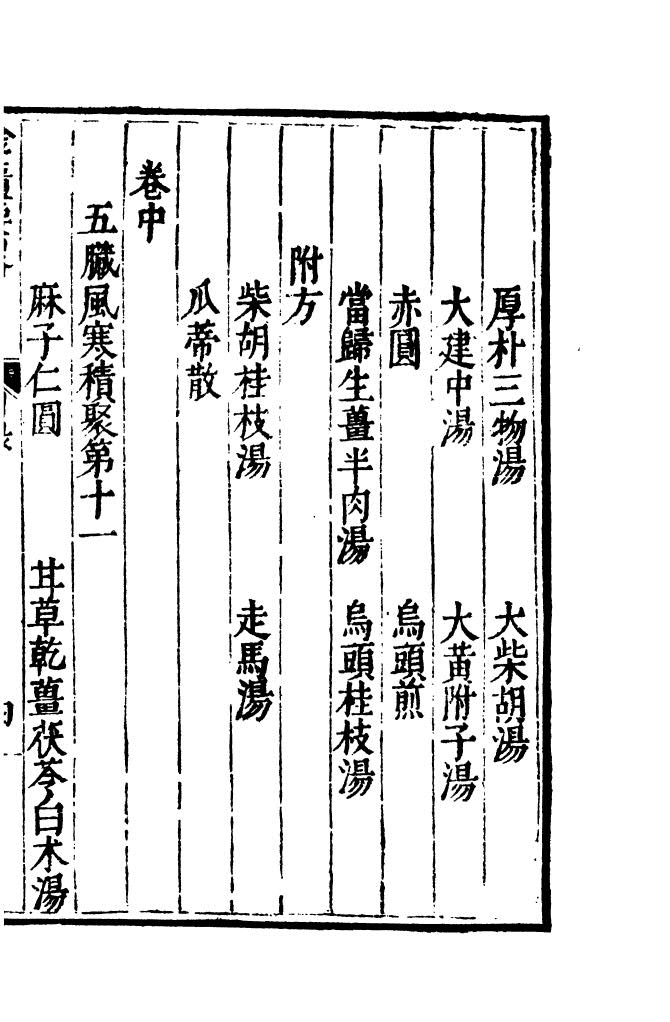 厚朴三物湯　大柴胡湯
大建中湯　大黃附子湯
赤圓　烏頭煎
當歸生薑羊肉湯　烏頭桂枝湯
附方
柴胡桂枝湯　走馬湯
瓜蒂散
卷中
五臟風寒積聚第十一
麻子仁圓　甘草乾薑茯苓白术湯